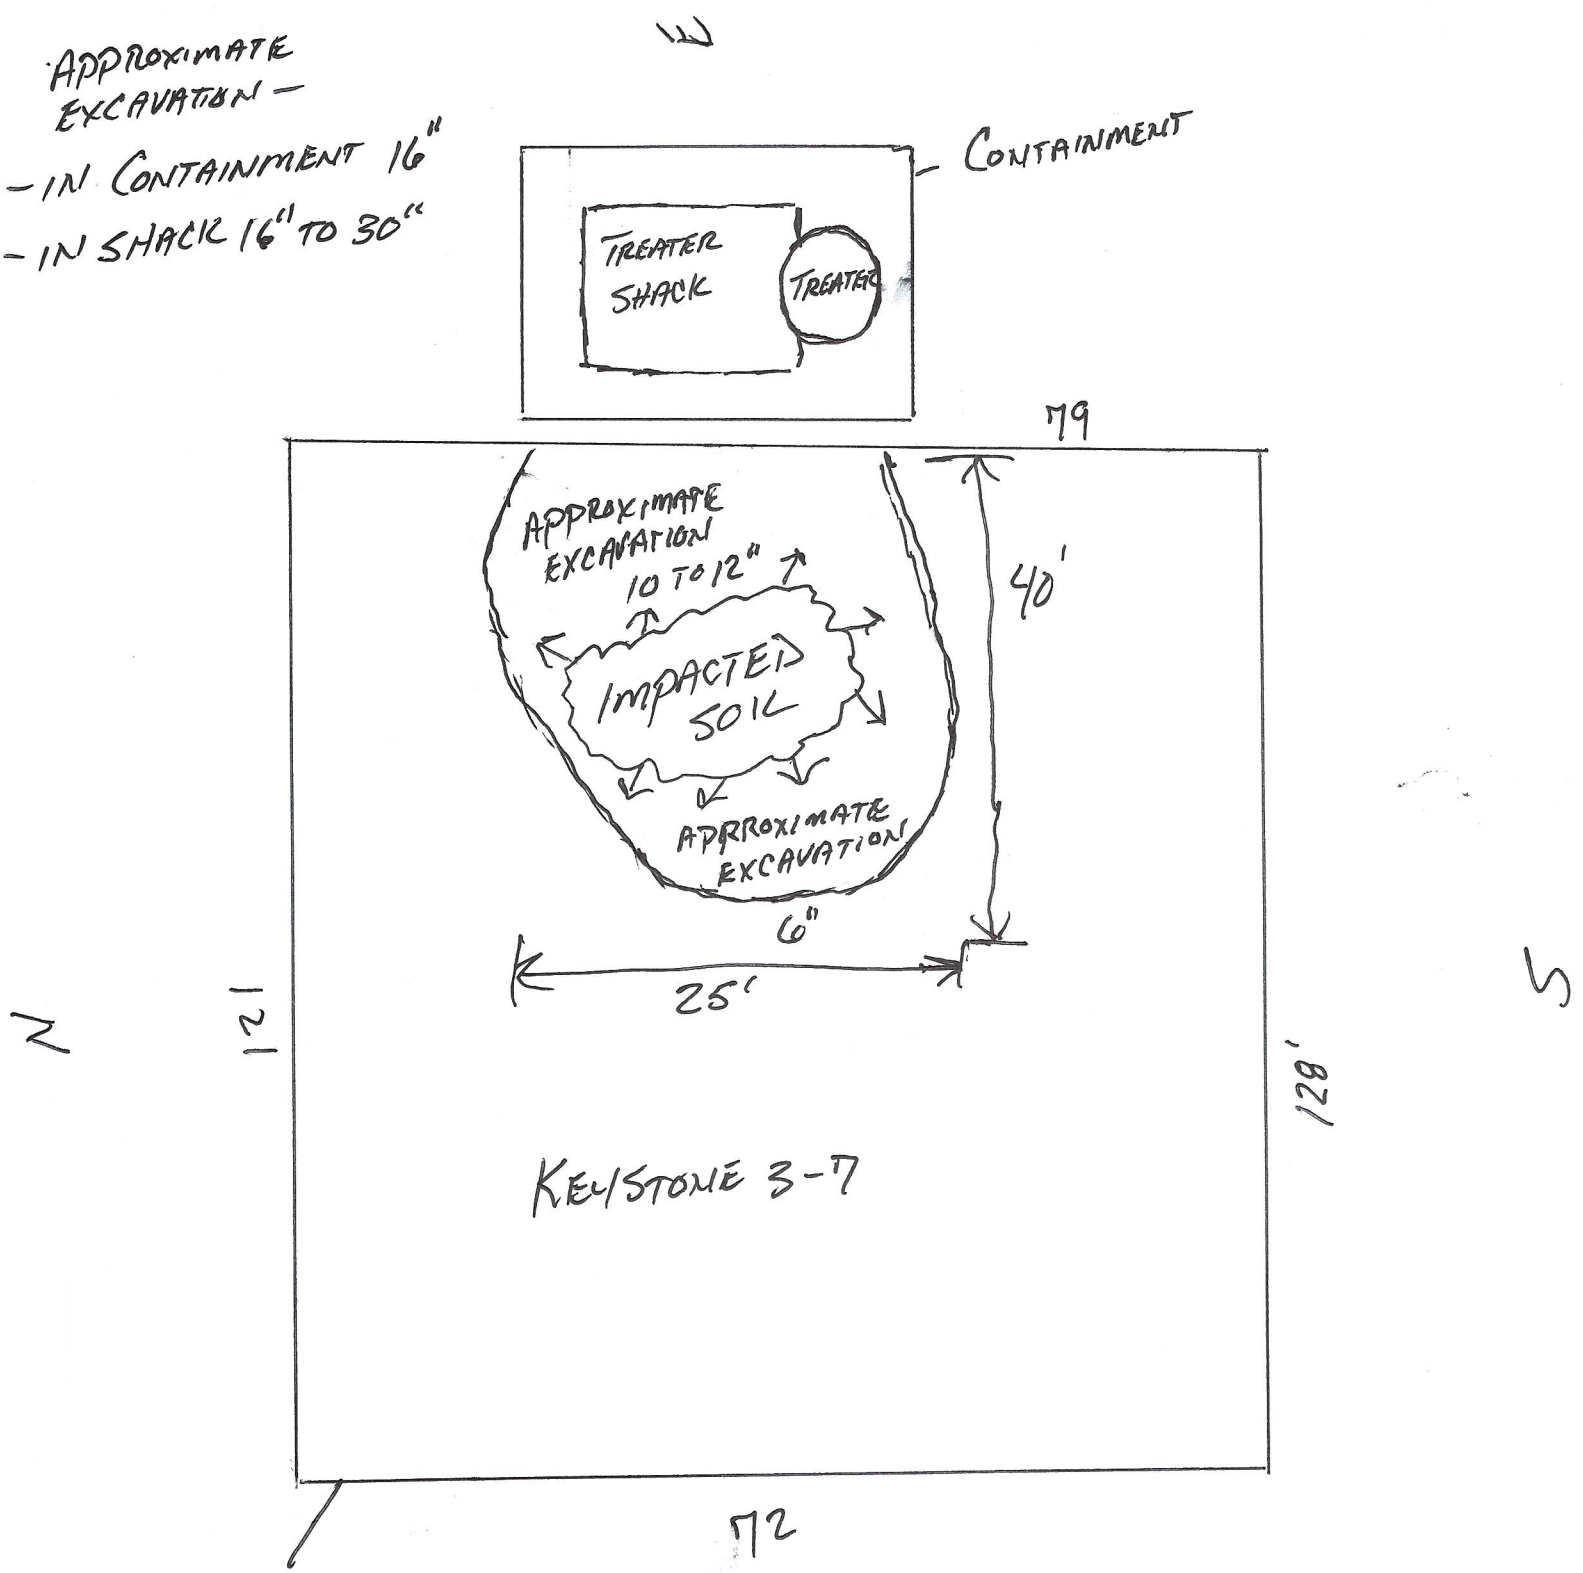 E
APPROXIMATE
EXCAVATION -
- IN CONTAINMENT 16"
- IN SHACK 16" TO 30"
CONTAINMENT
TREATER
SHACK
TREATER
79
APPROXIMATE
EXCAVATION
10 TO 12"
40'
IMPACTED
SOIL
APPROXIMATE
EXCAVATION
6"
25'
N
121
S
128'
KEYSTONE 3-7
72